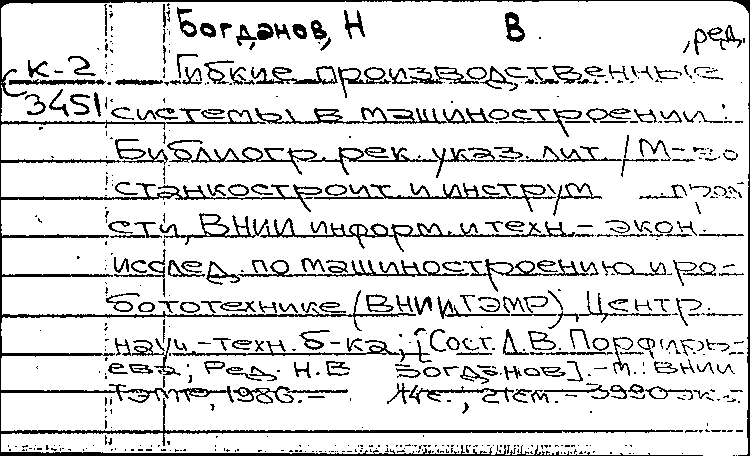 Богданов, Н В. , ред.
С К-2
3451
Гибкие производственные
системы в машиностроении:
Библиогр. рек. указ. лит / М-во
станкостроит. и инструм пром
сти, ВНИИ информ. и техн.-экон.
исслед. по машиностроению и ро-
бототехнике (ВНИИТЭМР), Центр.
науч.-техн. б-ка; [Сост. Л.В. Порфирь-
ева; Ред. Н.В Богданов]. -М.: ВНИИ
ТЭМР, 1986. - 44с.; 21см. - 3990 экз.